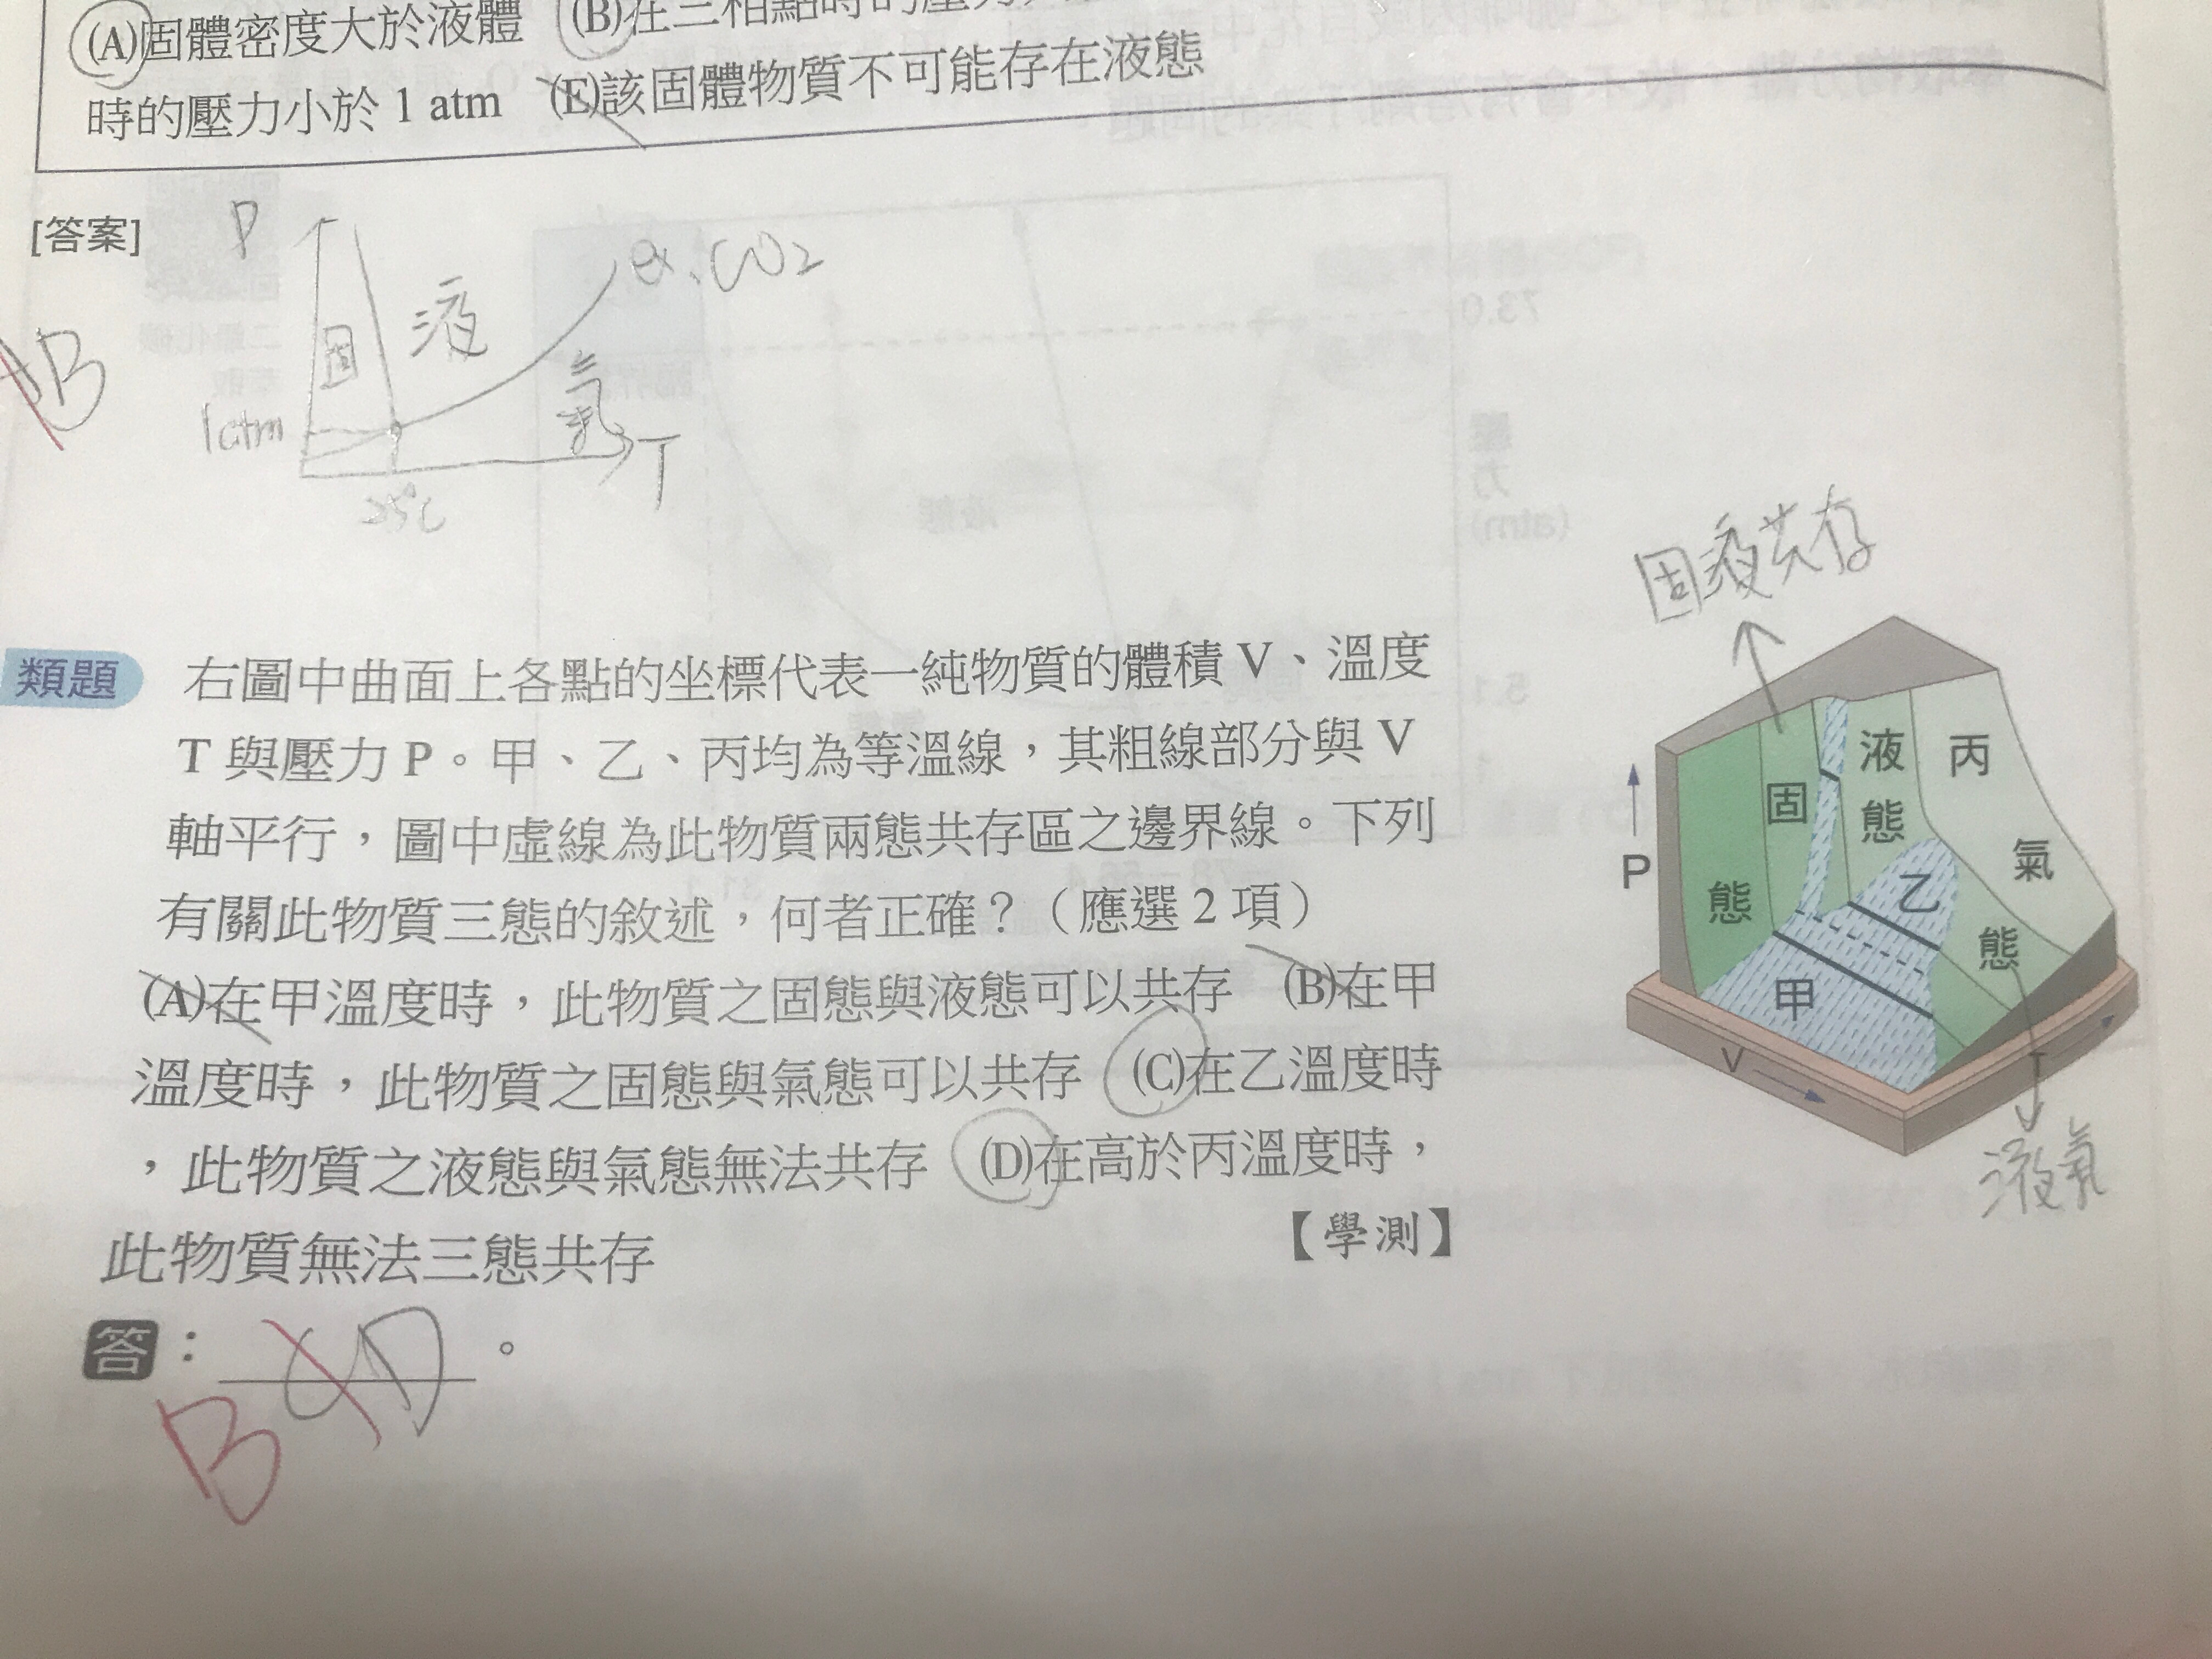 (A)固體密度大於液體 (B)在三相點時的壓力
時的壓力小於 1 atm (E)該固體物質不可能存在液態
[答案]
P
ex. CO2
液
固
氣
1atm
T
25℃
AB
固液共存
類題 右圖中曲面上各點的坐標代表一純物質的體積 V、溫度
T 與壓力 P。甲、乙、丙均為等溫線,其粗線部分與 V
軸平行,圖中虛線為此物質兩態共存區之邊界線。下列
有關此物質三態的敘述,何者正確?(應選 2 項)
(A)在甲溫度時,此物質之固態與液態可以共存 (B)在甲
溫度時,此物質之固態與氣態可以共存 (C)在乙溫度時
,此物質之液態與氣態無法共存 (D)在高於丙溫度時,
此物質無法三態共存 【學測】
答: CD 。
B
液
丙
固
態
氣
P
態
乙
態
甲
V
T
液氣